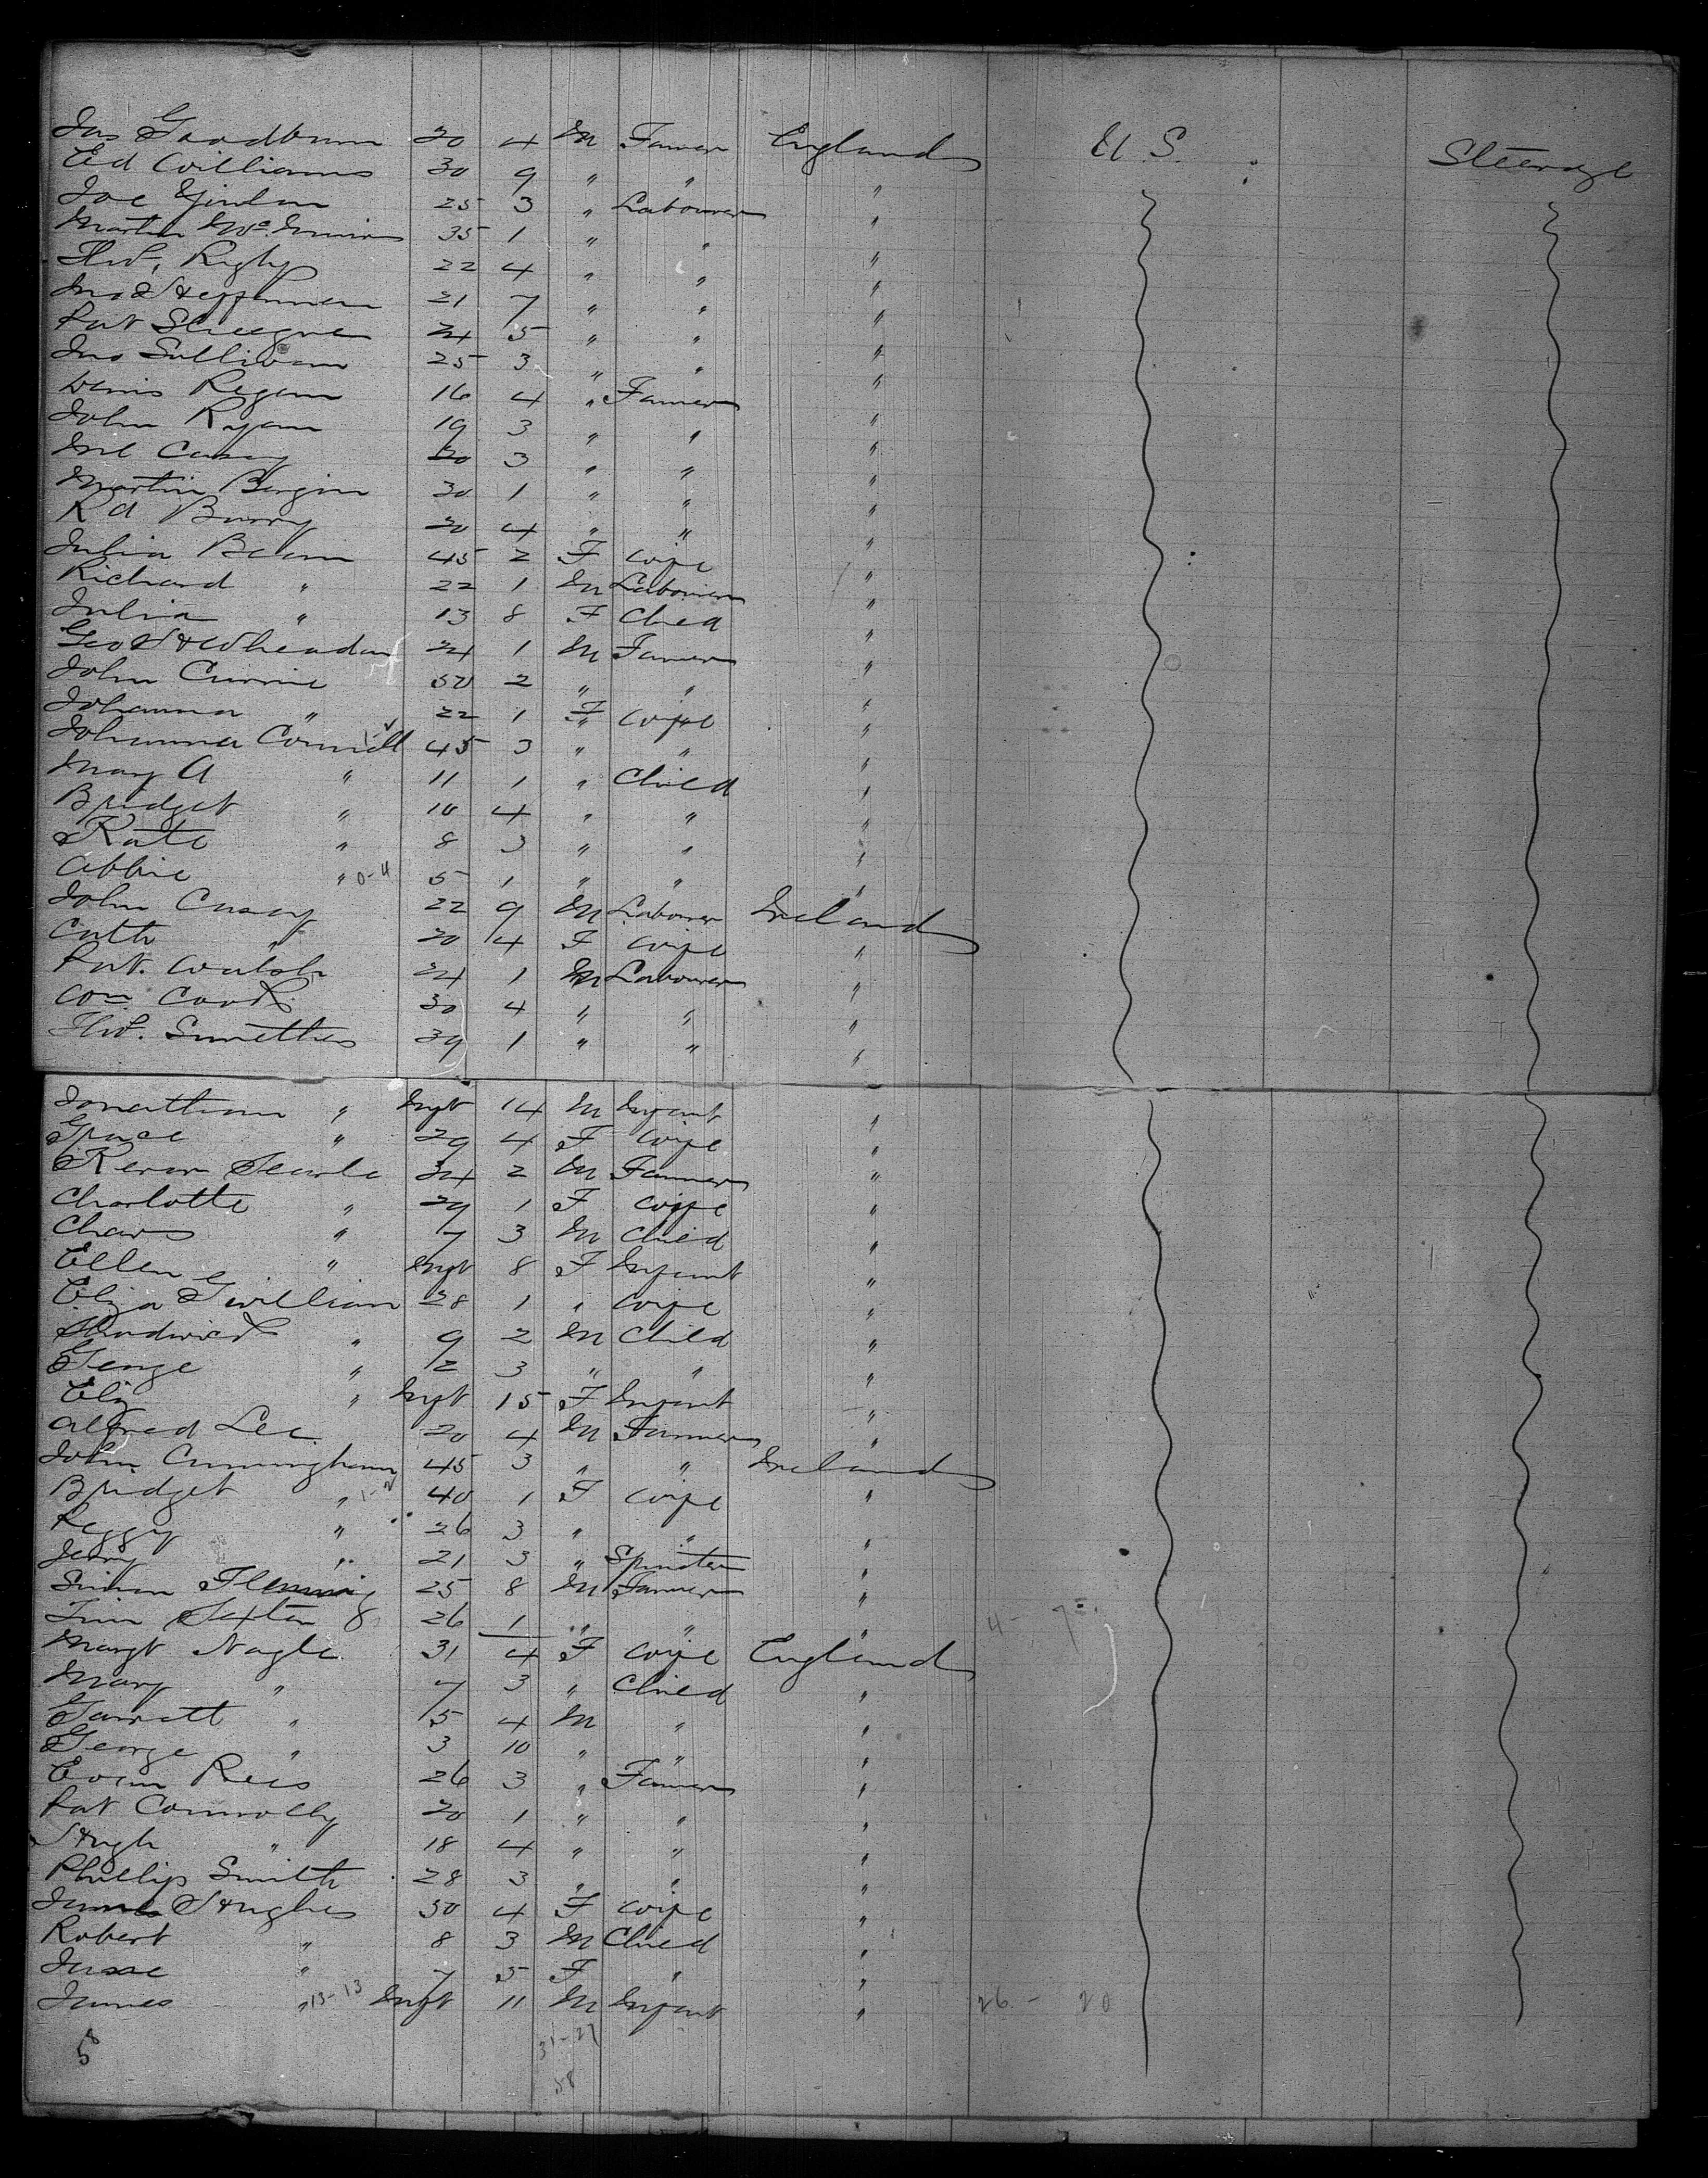 Jas Goodburn 20 4 M Farmer England U. S. Steerage
Ed Williams 30 9 " " "
Joe 25 3 " Labourer "
Martin Mc 35 1 " " "
Thos. Rigby 22 4 " " "
Jno Heffernan 21 7 " " "
Pat 24 5 " " "
Jno Sullivan 25 3 " " "
Denis Regan 16 4 " Farmer "
John Ryan 19 3 " " "
Ml Casey 20 3 " " "
Martin Bergin 30 1 " " "
Rd Barry 20 4 " " "
Julia 45 2 F Wife "
Richard " 22 1 M Labourer "
Julia " 13 8 F Child "
Geo H Wheadan 24 1 M Farmer "
John Currie 50 2 " " "
Johanna " 22 1 F Wife "
Johanna Connell 45 3 " " "
Mary A " 11 1 " Child "
Bridget " 10 4 " " "
Kate " 8 3 " " "
Abbie " 0-4 5 1 " " "
John Casey 22 9 M Labourer Ireland
Cath " 20 4 F Wife "
Pat. Walsh 24 1 M Labourer "
Con 30 4 " " "
Thos. Smethers 39 1 " " "
Jonathan " Inft 14 M Infant "
Grace " 29 4 F Wife "
Searle 34 2 M Farmer "
Charlotte " 29 1 F Wife "
Chars " 7 3 M Child "
Ellen " Inft 8 F Infant "
Eliza Gwilliam 28 1 " Wife "
Shadrick " 9 2 M Child "
George " 2 3 " " "
Eliz " Inft 15 F Infant "
Alfred Lee 20 4 M Farmer "
John Cunningham 45 3 " " Ireland
Bridget " 40 1 F Wife "
Peggy " 26 3 " " "
" 21 3 " Spinster "
Simon Fleming 25 8 M Farmer "
Tim Sexton 26 1 " " "
Margt Nagle 31 4 F Wife England
Mary " 7 3 " Child "
Garrett " 5 4 M " "
George " 3 10 " " "
Evan Rees 26 3 " Farmer "
Pat Connolly 20 1 " " "
Hugh " 18 4 " " "
Phillip Smith 28 3 " " "
Hughes 30 4 F Wife "
Robert " 8 3 M Child "
" 7 5 F " "
James " 13-13 Inft 11 M Infant " 26 - 20
31-27
5
58